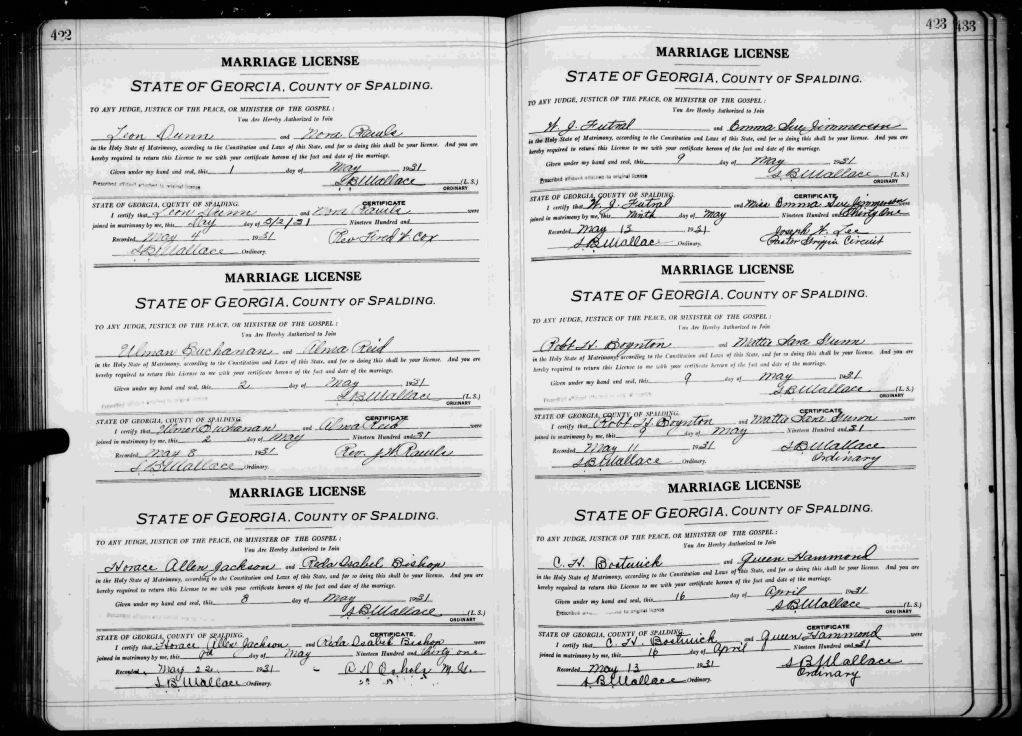 422
MARRIAGE LICENSE
STATE OF GEORGIA, COUNTY OF SPALDING.
TO ANY JUDGE, JUSTICE OF THE PEACE, OR MINISTER OF THE GOSPEL:
You Are Hereby Authorized to Join
Leon Dunn and Nora Rawls
in the Holy State of Matrimony, according to the Constitution and Laws of this State, and for so doing this shall be your license. And you are
hereby required to return this License to me with your certificate hereon of the fact and date of the marriage.
Given under my hand and seal, this 1 day of May 1931
Prescribed affidavit attached to original license S B Wallace (L. S.)
ORDINARY
STATE OF GEORGIA, COUNTY OF SPALDING. CERTIFICATE
I certify that Leon Dunn and Nora Rawls were
joined in matrimony by me, this May day of 5/2/31 Nineteen Hundred and
Recorded May 4 1931 Rev Fred W Cox
S B Wallace Ordinary.
MARRIAGE LICENSE
STATE OF GEORGIA, COUNTY OF SPALDING.
TO ANY JUDGE, JUSTICE OF THE PEACE, OR MINISTER OF THE GOSPEL:
You Are Hereby Authorized to Join
Ulman Buchanan and Alma Reid
in the Holy State of Matrimony, according to the Constitution and Laws of this State, and for so doing this shall be your license. And you are
hereby required to return this License to me with your certificate hereon of the fact and date of the marriage.
Given under my hand and seal, this 2 day of May 1931
S B Wallace (L. S.)
ORDINARY
STATE OF GEORGIA, COUNTY OF SPALDING. CERTIFICATE
I certify that Ulmon Buchanan and Alma Reid were
joined in matrimony by me, this 2 day of May Nineteen Hundred and 31
Recorded May 8 1931 Rev. J. H. Rawls
S B Wallace Ordinary.
MARRIAGE LICENSE
STATE OF GEORGIA, COUNTY OF SPALDING.
TO ANY JUDGE, JUSTICE OF THE PEACE, OR MINISTER OF THE GOSPEL:
You Are Hereby Authorized to Join
Horace Allen Jackson and Reda Isabel Bishop
in the Holy State of Matrimony, according to the Constitution and Laws of this State, and for so doing this shall be your license. And you are
hereby required to return this License to me with your certificate hereon of the fact and date of the marriage.
Given under my hand and seal, this 8 day of May 1931
S B Wallace (L. S.)
ORDINARY
STATE OF GEORGIA, COUNTY OF SPALDING. CERTIFICATE
I certify that Horace Allen Jackson and Reda Isabel Bishop were
joined in matrimony by me, this day of May Nineteen Hundred and thirty one
Recorded May 22 1931 M. G.
S B Wallace Ordinary.
423 433
MARRIAGE LICENSE
STATE OF GEORGIA, COUNTY OF SPALDING.
TO ANY JUDGE, JUSTICE OF THE PEACE, OR MINISTER OF THE GOSPEL:
You Are Hereby Authorized to Join
W. J. Futral and Emma Sue Jimmerson
in the Holy State of Matrimony, according to the Constitution and Laws of this State, and for so doing this shall be your license. And you are
hereby required to return this License to me with your certificate hereon of the fact and date of the marriage.
Given under my hand and seal, this 9 day of May 1931
Prescribed affidavit attached to original license S B Wallace (L. S.)
ORDINARY
STATE OF GEORGIA, COUNTY OF SPALDING. CERTIFICATE
I certify that W. J. Futral and Miss Emma Sue Jimmerson were
joined in matrimony by me, this Ninth day of May Nineteen Hundred and Thirty One
Recorded May 13 1931 Joseph W. Lee
S B Wallace Ordinary. Pastor Griffin Circuit
MARRIAGE LICENSE
STATE OF GEORGIA, COUNTY OF SPALDING.
TO ANY JUDGE, JUSTICE OF THE PEACE, OR MINISTER OF THE GOSPEL:
You Are Hereby Authorized to Join
Robt H. Boynton and Mattie Sara Dunn
in the Holy State of Matrimony, according to the Constitution and Laws of this State, and for so doing this shall be your license. And you are
hereby required to return this License to me with your certificate hereon of the fact and date of the marriage.
Given under my hand and seal, this 9 day of May 1931
S B Wallace (L. S.)
ORDINARY
STATE OF GEORGIA, COUNTY OF SPALDING. CERTIFICATE
I certify that Robt H Boynton and Mattie Sara Dunn were
joined in matrimony by me, this 9 day of May Nineteen Hundred and 31
Recorded May 11 1931 S B Wallace
S B Wallace Ordinary. Ordinary
MARRIAGE LICENSE
STATE OF GEORGIA, COUNTY OF SPALDING.
TO ANY JUDGE, JUSTICE OF THE PEACE, OR MINISTER OF THE GOSPEL:
You Are Hereby Authorized to Join
C. H. Bostwick and Queen Hammond
in the Holy State of Matrimony, according to the Constitution and Laws of this State, and for so doing this shall be your license. And you are
hereby required to return this License to me with your certificate hereon of the fact and date of the marriage.
Given under my hand and seal, this 16 day of April 1931
Prescribed to original license S B Wallace (L. S.)
ORDINARY
STATE OF GEORGIA, COUNTY OF SPALDING. CERTIFICATE
I certify that C. H. Bostwick and Queen Hammond were
joined in matrimony by me, this 16 day of April Nineteen Hundred and 31
Recorded May 13 1931 S B Wallace
S B Wallace Ordinary. Ordinary